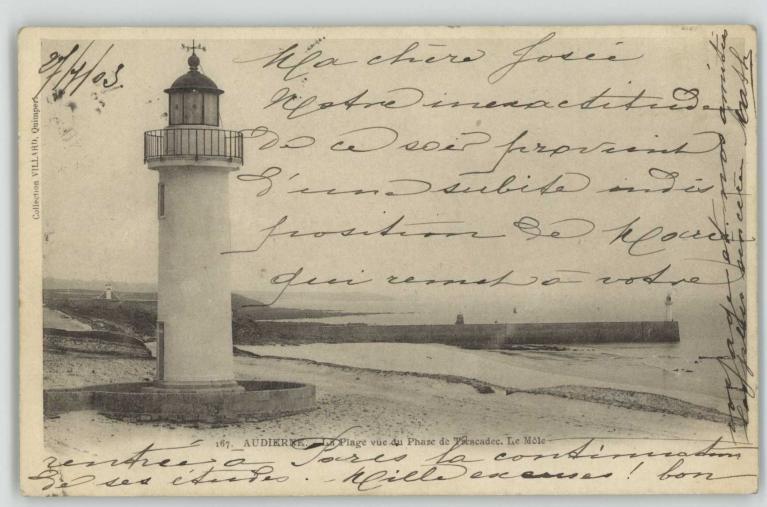 27/7/03
Ma chère Josée
Notre inexactitude
de ce soir provient
d'une subite indis
position de Marie
qui remet à votre
rentrée à Paris la continuation
de ses études. Mille excuses! bon
voyage et nos amitiés
sincères
167. AUDIERNE. - La Plage vue du Phare de Trescadec. Le Môle
Collection VILLARD, Quimper